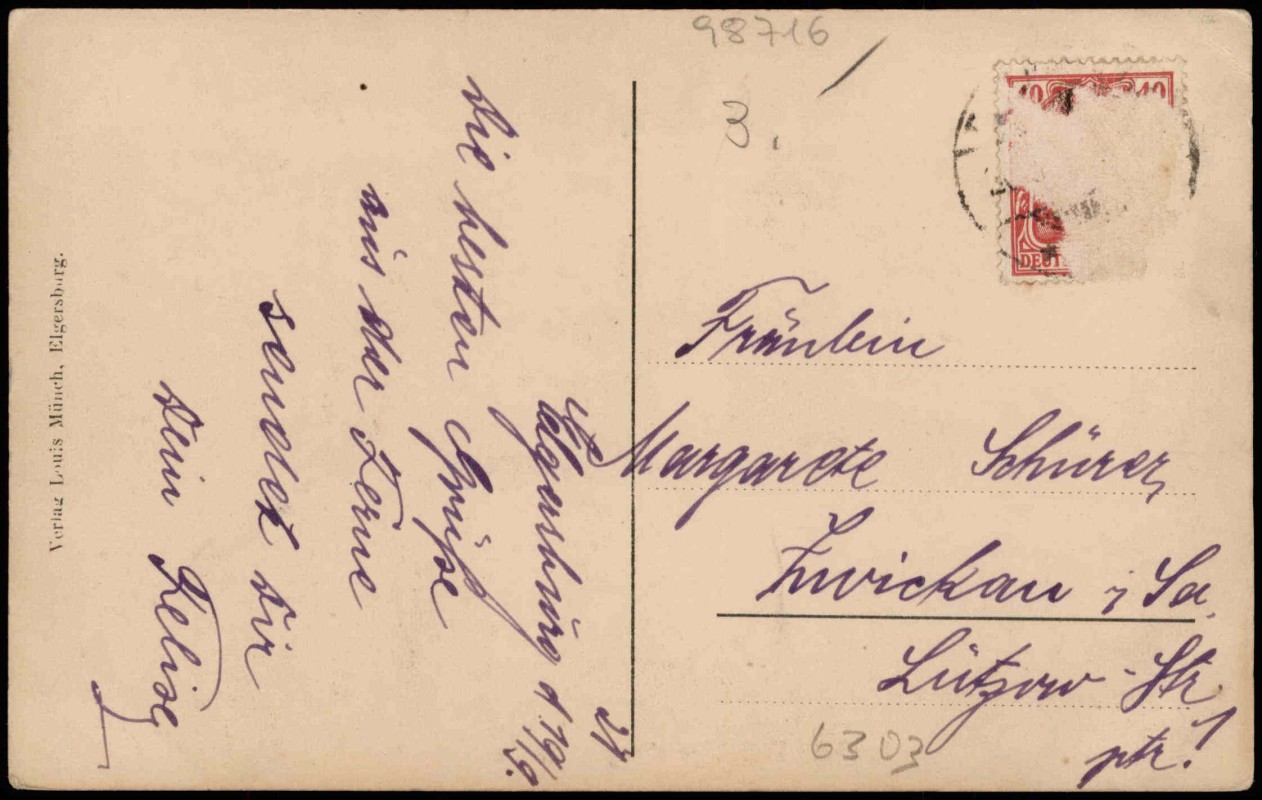 98716
3.
10 10
DEUT
Fräulein
Margarete Schürer,
Zwickau i Sa.
Lützow-Str
ptr!
6303
Elgersburg d 19/9.
Die besten Grüße
aus der Ferne
sendet Dir
Dein Felix
Verlag Louis Münch, Elgersburg.